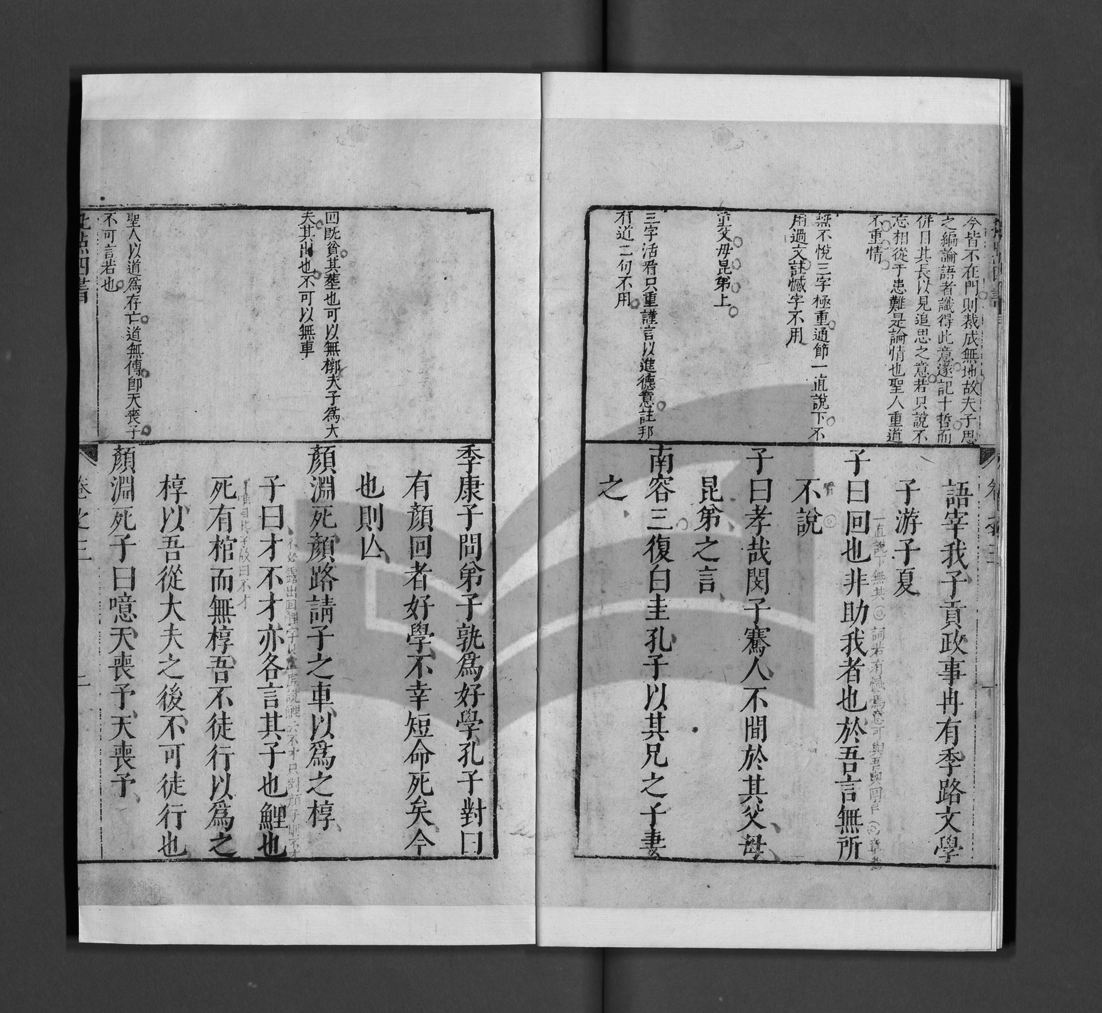 今皆不在門則裁成無地故夫子思
之編論語者識得此意遂記十哲而
併目其長以見追思之意若只說不
忘相從于患難是論情也聖人重道
不重情
無不悅三字極重通節一直說下不
用過文註憾字不用
重父母昆弟上
三字活看只重謹言以進德意註邦
有道二句不用
語宰我子貢政事冉有季路文學
子游子夏
子曰回也非助我者也於吾言無所
不說
子曰孝哉閔子騫人不間於其父母
昆弟之言
南容三復白圭孔子以其兄之子妻
之
回既貧其葬也可以無槨夫子為大
夫其出也不可以無車
聖人以道為存亡道無傳即天喪予
不可言若也
季康子問弟子孰為好學孔子對曰
有顏回者好學不幸短命死矣今
也則亾
顏淵死顏路請子之車以為之椁
子曰才不才亦各言其子也鯉也
死有棺而無椁吾不徒行以為之
椁以吾從大夫之後不可徒行也
顏淵死子曰噫天喪予天喪予
卷之三